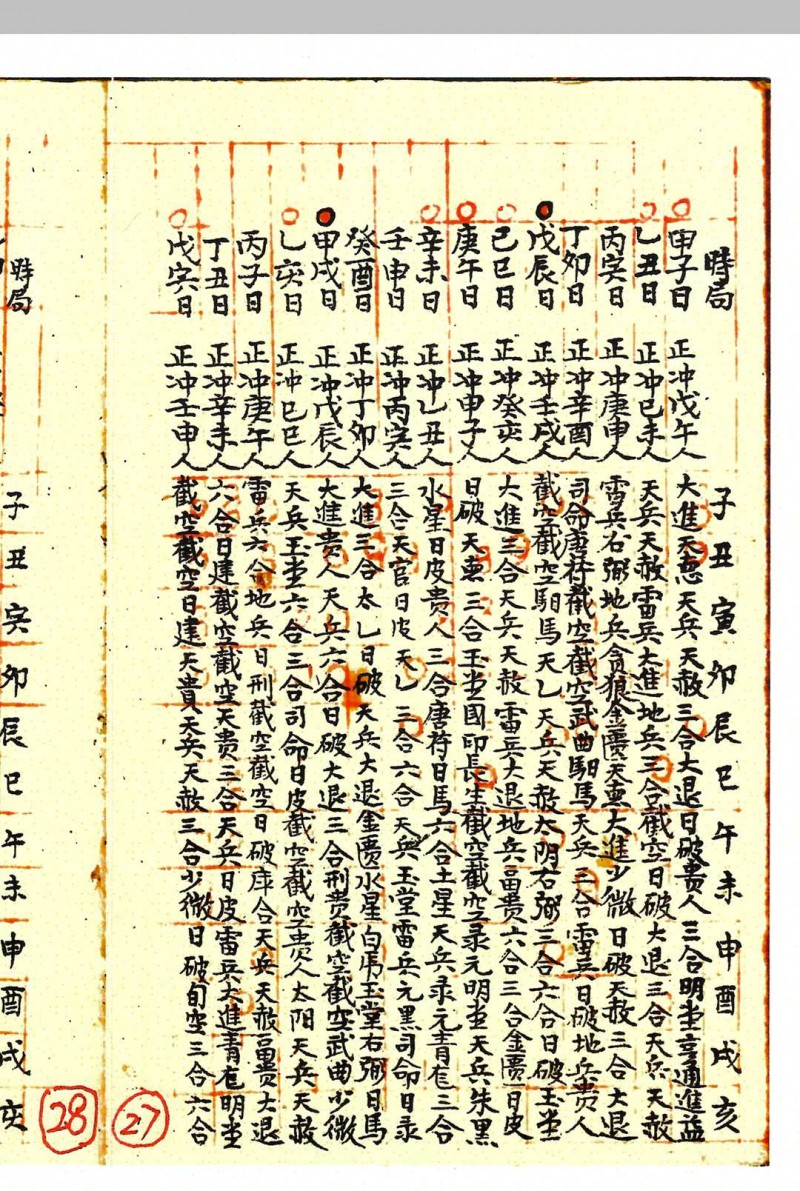 時局 子丑寅卯辰巳午未申酉戌亥
甲子日 正冲戊午人 大進天恩天兵天赦三合大退日破貴人三合明堂亨通進益
乙丑日 正冲己未人 天兵天赦雷兵大進地兵三合截空日破大退三合天兵天赦
丙寅日 正冲庚申人 雷兵右弼地兵贪狼金匮天恵大進少微日破天赦三合大退
丁卯日 正冲辛酉人 司命唐符截空截空武曲馹馬天兵三合雷兵日破地兵贵人
戊辰日 正冲壬戌人 截空截空馹馬天乙天兵天赦太阴右弼三合六合日破玉堂
己巳日 正冲癸亥人 大進三合天兵天赦雷兵大退地兵畐贵六合三合金匮日皮
庚午日 正冲甲子人 日破天恵三合玉堂國印長生截空截空录元明堂天兵朱黑
辛未日 正冲乙丑人 水星日皮贵人三合唐符日馬六合土星天兵录元青龙三合
壬申日 正冲丙寅人 三合天官日皮天乙三合六合天兵玉堂雷兵元黑司命日录
癸酉日 正冲丁卯人 大進三合太乙日破天兵大退金匮水星白虎玉堂右弼日馬
甲戌日 正冲戊辰人 大進贵人天兵六合日破大退三合刑贵截空截空武曲少微
乙亥日 正冲己巳人 天兵玉堂六合三合司命日皮截空截空贵人太阳天兵天赦
丙子日 正冲庚午人 雷兵六合地兵日刑截空截空日破库合天兵天赦畐贵大退
丁丑日 正冲辛未人 六合日建截空截空天贵三合天兵日皮雷兵大進青龙明堂
戊寅日 正冲壬申人 截空截空日建天貴天兵天赦三合少微日破旬空三合六合
27
28
時局
子丑寅卯辰巳午未申酉戌亥